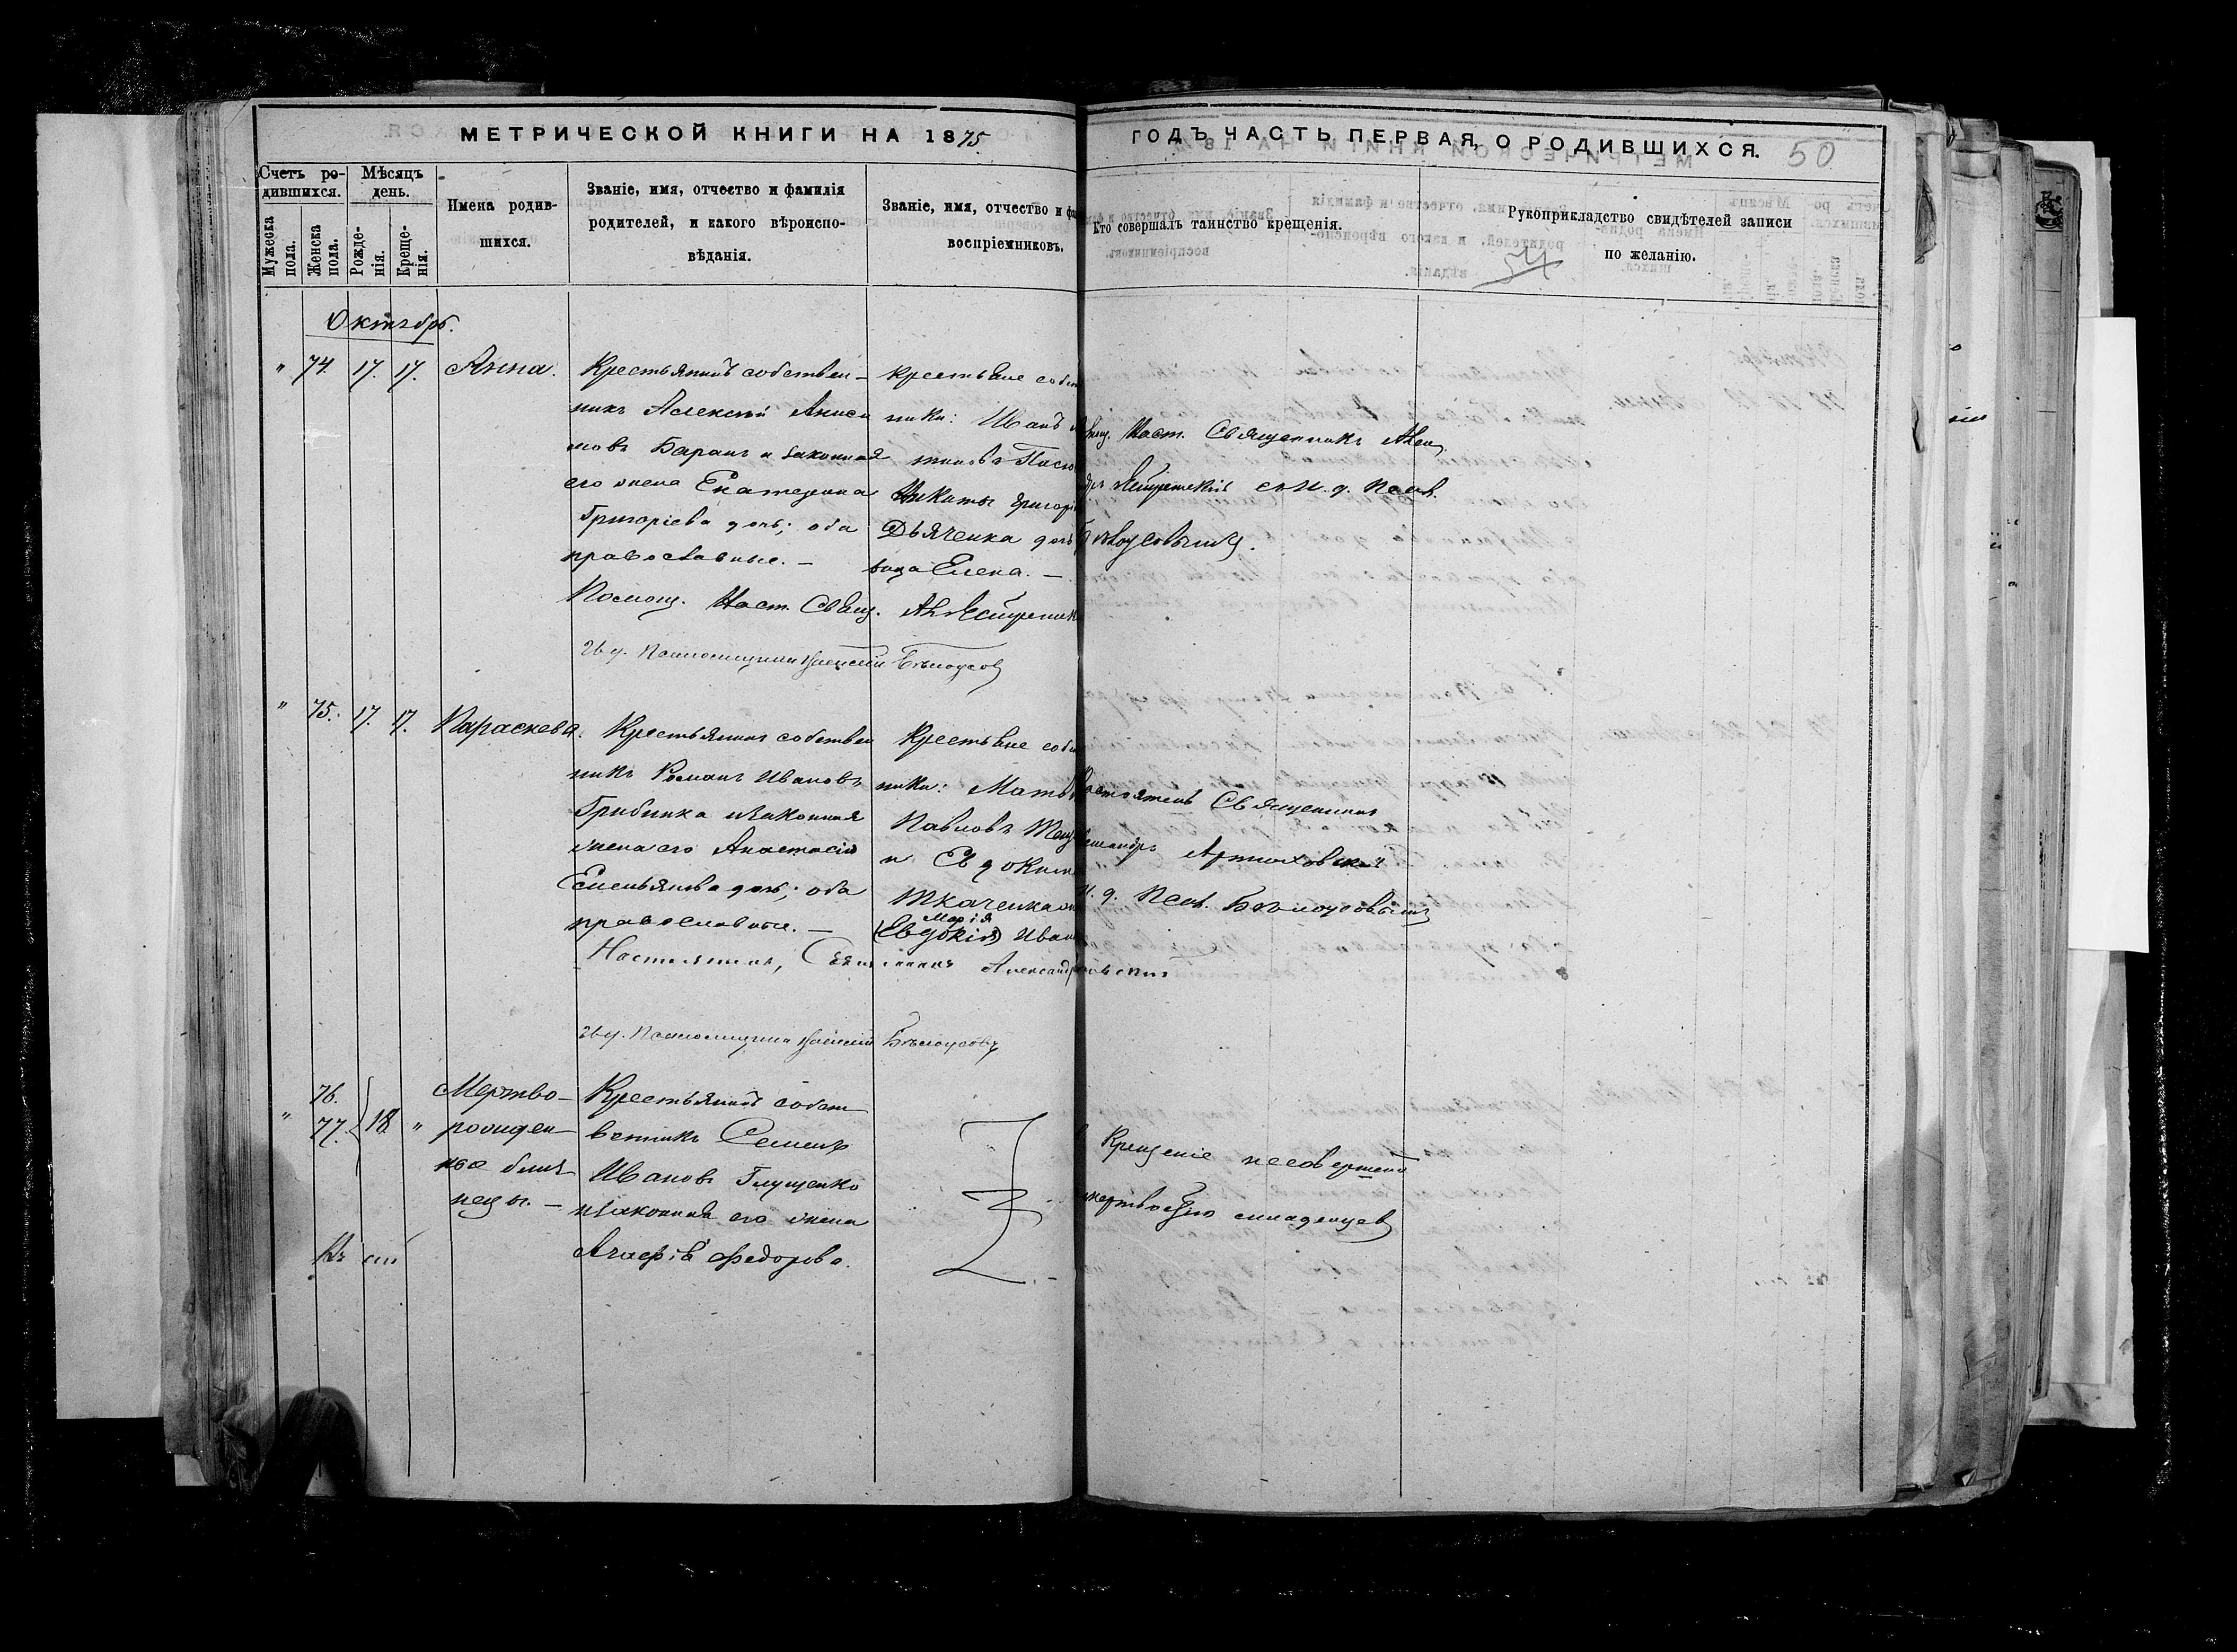 МЕТРИЧЕСКОЙ КНИГИ НА 1875.
ГОДЪ ЧАСТЬ ПЕРВАЯ, О РОДИВШИХСЯ.
50
Счетъ ро-
дившихся.
Мѣсяцъ
день.
Мужеска
пола.
Женска
пола.
Рожде-
нія.
Креще-
нія.
Имена родив-
шихся.
Званіе, имя, отчество и фамилія
родителей, и какого вѣроиспо-
вѣданія.
Званіе, имя, отчество и фа
воспріемниковъ.
Кто совершалъ таинство крещенія.
Рукоприкладство свидѣтелей записи
по желанію.
Октябрь.
" 74 17. 17. Анна.
Крестьянинъ собствен-
никъ Алексѣй Аниси
мовъ Баранъ и законная
его жена Екатерина
Григоріева дочь; оба
православные. —
крестьяне собст
ники: Иванъ
Никиты Григорі
Дьяченка дочь
вица Елена. —
Наст. Священникъ
съ И. д. Псал.
Бѣлоусовымъ.
Помощ. Наст. Свящ.
Псаломщика Бѣлоусовъ
" 75. 17. 17. Параскева.
Крестьянинъ собствен
никъ Романъ Ивановъ
Грибинка и законная
жена его Анастасія
Емельянова дочь; оба
православные. —
Крестьяне собст
ники: Матв
Павловъ
и Евдоким
Ткаченка
Марія
(Евдокія) Иван
Настоятель Священникъ
Артюховскій
И. д. Псал. Бѣлоусовымъ
Настоятель, Священникъ Александр
Псаломщика Бѣлоусовъ
76.
" 77. 18 "
Мертво-
рожден-
ные близ-
нецы. —
Крестьянинъ собст
венникъ Семенъ
Ивановъ Глущенко
и законная его жена
Агафія Федорова.
Z
Крещеніе не совершено
младенцевъ